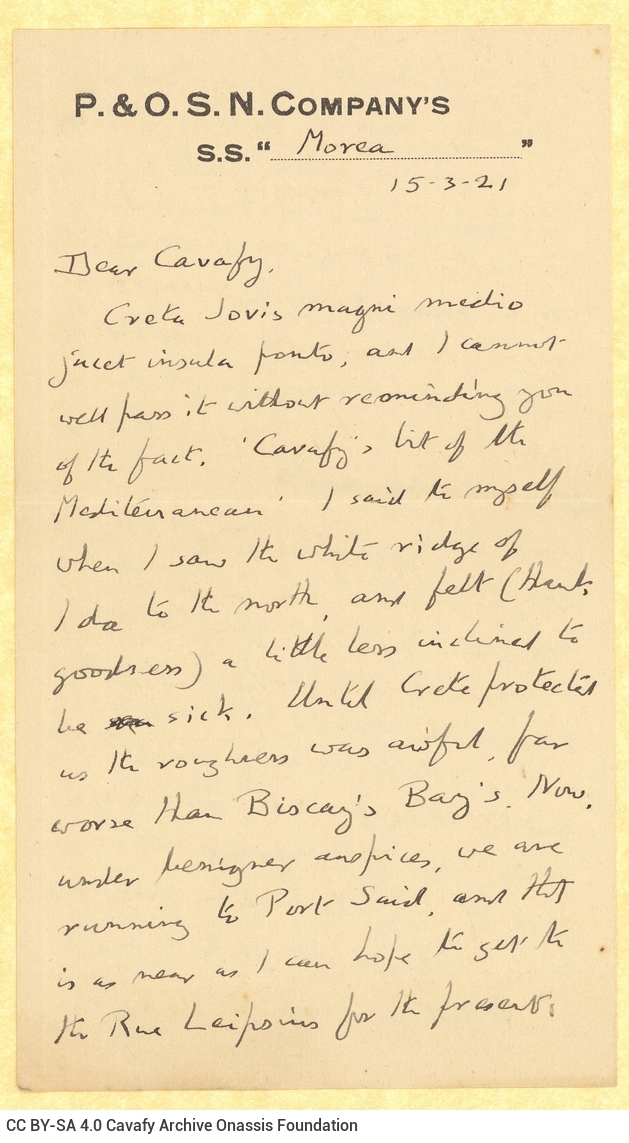 P. & O. S. N. COMPANY'S
S.S. "Morea"
15-3-21
Dear Cavafy,
Creta Jovis magni medio
jacet insula ponto, and I cannot
well pass it without reminding you
of the fact. 'Cavafy's bit of the
Mediterranean' I said to myself
when I saw the white ridge of
Ida to the north, and felt (thank
goodness) a little less inclined to
be sick. Until Crete protected
us the roughness was awful, far
worse than Biscay's Bay's. Now,
under benigner auspices, we are
running to Port Said, and that
is as near as I can hope to get to
the Rue Lepsius for the present.
CC BY-SA 4.0 Cavafy Archive Onassis Foundation